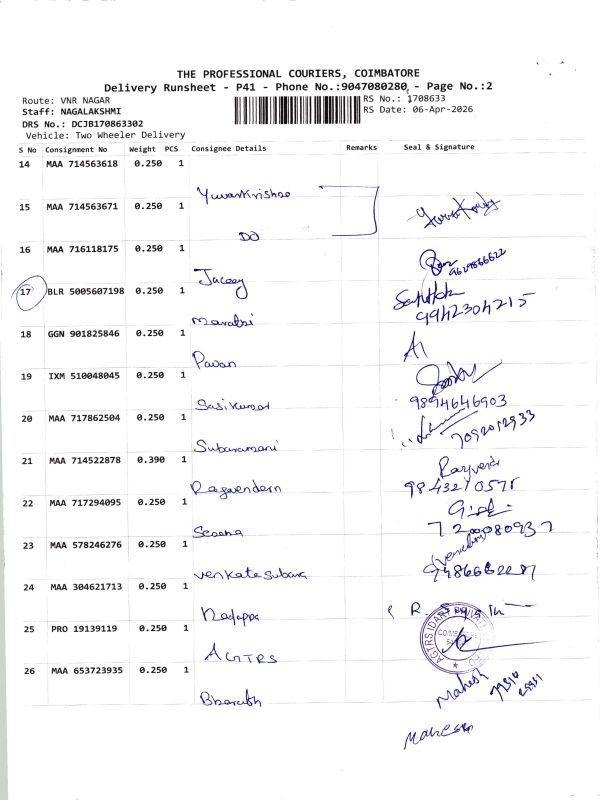 THE PROFESSIONAL COURIERS, COIMBATORE
Delivery Runsheet - P41 - Phone No.:9047080280 - Page No.:2
Route: VNR NAGAR
RS No.: 1708633
Staff: NAGALAKSHMI
RS Date: 06-Apr-2026
DRS No.: DCJB170863302
Vehicle: Two Wheeler Delivery
S No Consignment No Weight PCS Consignee Details Remarks Seal & Signature
14 MAA 714563618 0.250 1
Yuvankrishna
15 MAA 714563671 0.250 1
DO
16 MAA 716118175 0.250 1
9629866622
17 BLR 5005607198 0.250 1
9942304215
18 GGN 901825846 0.250 1
Pavan
19 IXM 510048045 0.250 1
Sasikumar
9894646903
20 MAA 717862504 0.250 1
7092012933
Subaramani
21 MAA 714522878 0.390 1
Ragavendern
9843210575
22 MAA 717294095 0.250 1
7200080937
23 MAA 578246276 0.250 1
Venkatesubara
24 MAA 304621713 0.250 1
Nagappa
25 PRO 19139119 0.250 1
AGTRS
26 MAA 653723935 0.250 1
Mahesh
Bharath
Mahesh